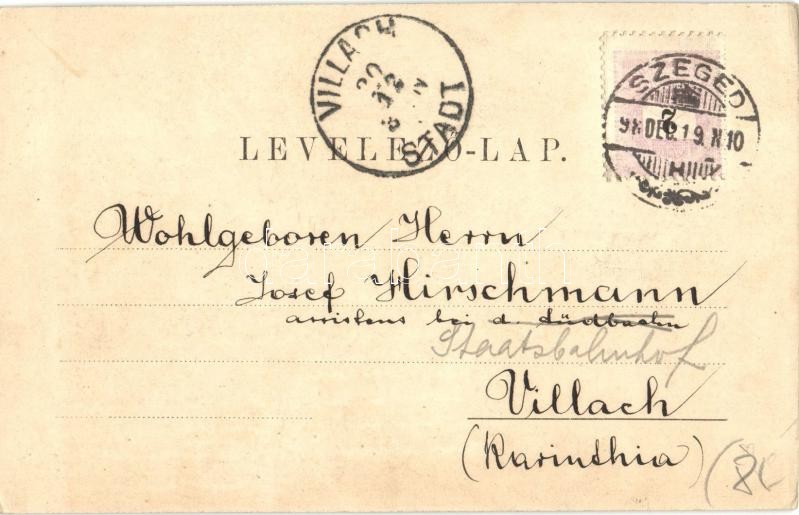 VILLACH
20
12
STADT
SZEGED
2
DEC. 19. N 10
LEVELEZŐ-LAP.
Wohlgeboren Herrn
Josef Hirschmann
assistens bei d. Südbahn
Staatsbahnhof
Villach
(Karinthia)